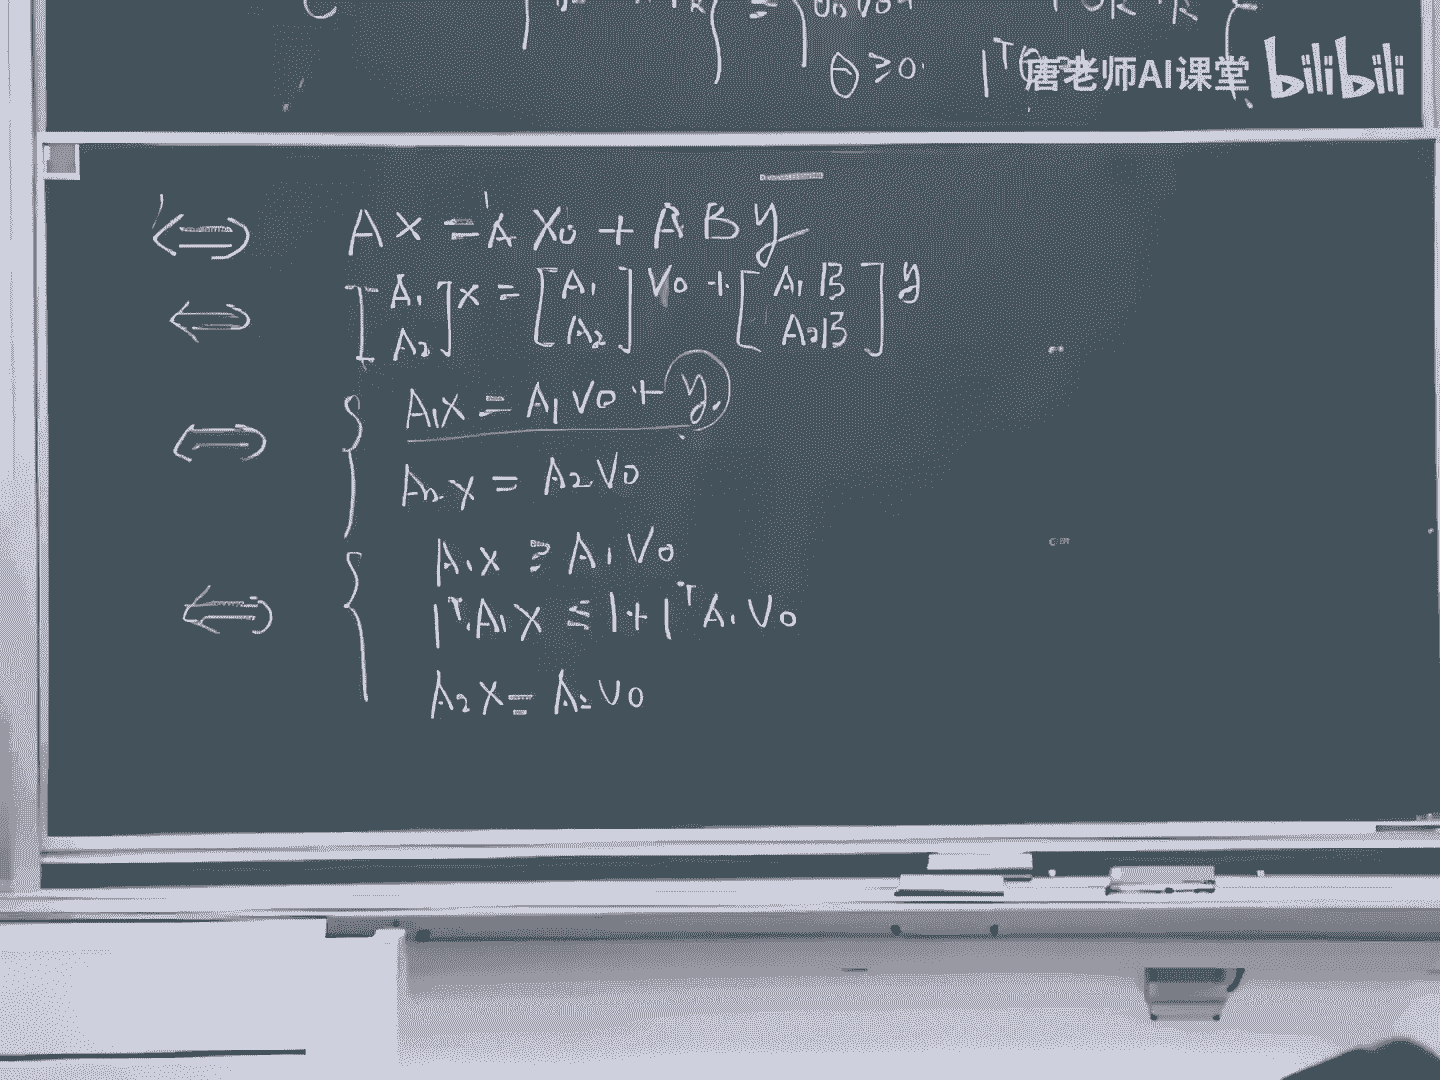 θ ≥ 0.
唐老师AI课堂 bilibili
⟺ AX = A X₀ + A B y
⟺ [A₁ A₂] x = [A₁ A₂] V₀ + [A₁B A₂B] y
⟺ { A₁x = A₁V₀ + y.
A₂x = A₂V₀
⟺ { A₁x ≥ A₁V₀
1ᵀA₁x ≤ 1 + 1ᵀA₁V₀
A₂x = A₂V₀